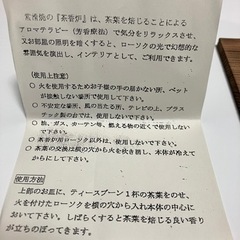 常滑焼の『茶香炉』は、茶葉を焙じることによる
アロマテラピー（芳香療法）で気分をリラックスさせ、
又お部屋の照明を暗くすると、ローソクの光で幻想的な
雰囲気を演出し、インテリアとして、ご利用できます。
（使用上注意）
○ 火を使用するためお子様の手の届かない所、ペット
が接触しない場所で使用して下さい。
○ 不安定な場所、風の当たる所、テレビの上、プラス
チック製の台では、使用しないで下さい。
○ 油、ガス、カーテン等、燃える物の近くで使用しない
で下さい。
○ 茶香炉用ローソク以外は、使用しないで下さい。
○ ローソクの交換は横の穴から火を吹き消し、本体が冷めて
からにして下さい。
使用方法
上部のお皿に、ティースプーン１杯の茶葉をのせ、
火を付けたローソクを横の穴から入れ本体の中心に
おいて下さい。しばらくすると茶葉を焙じる良い香り
が立ちのぼってきます。